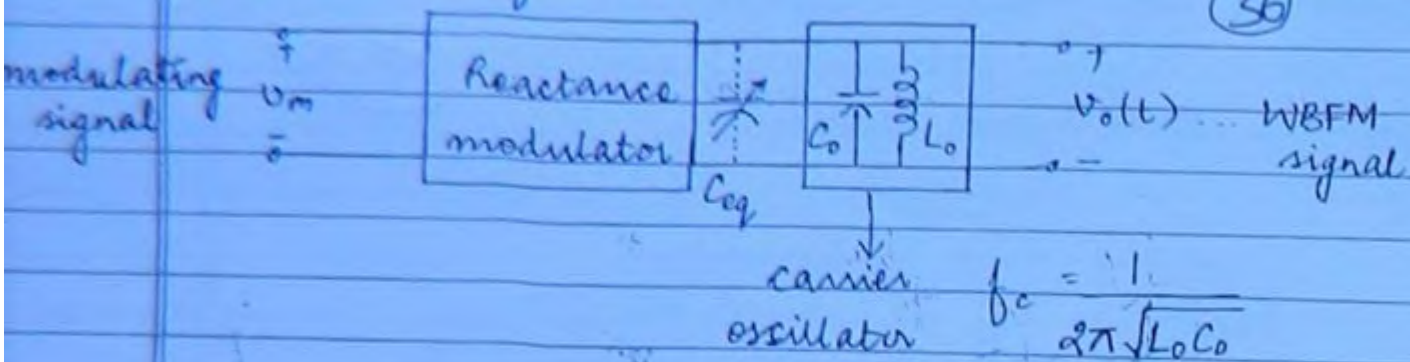 36
modulating signal
+
υm
-
Reactance modulator
Ceq
C₀
L₀
+
v₀(t) ... WBFM signal
-
carrier oscillator
fc = 1 / 2π√L₀C₀